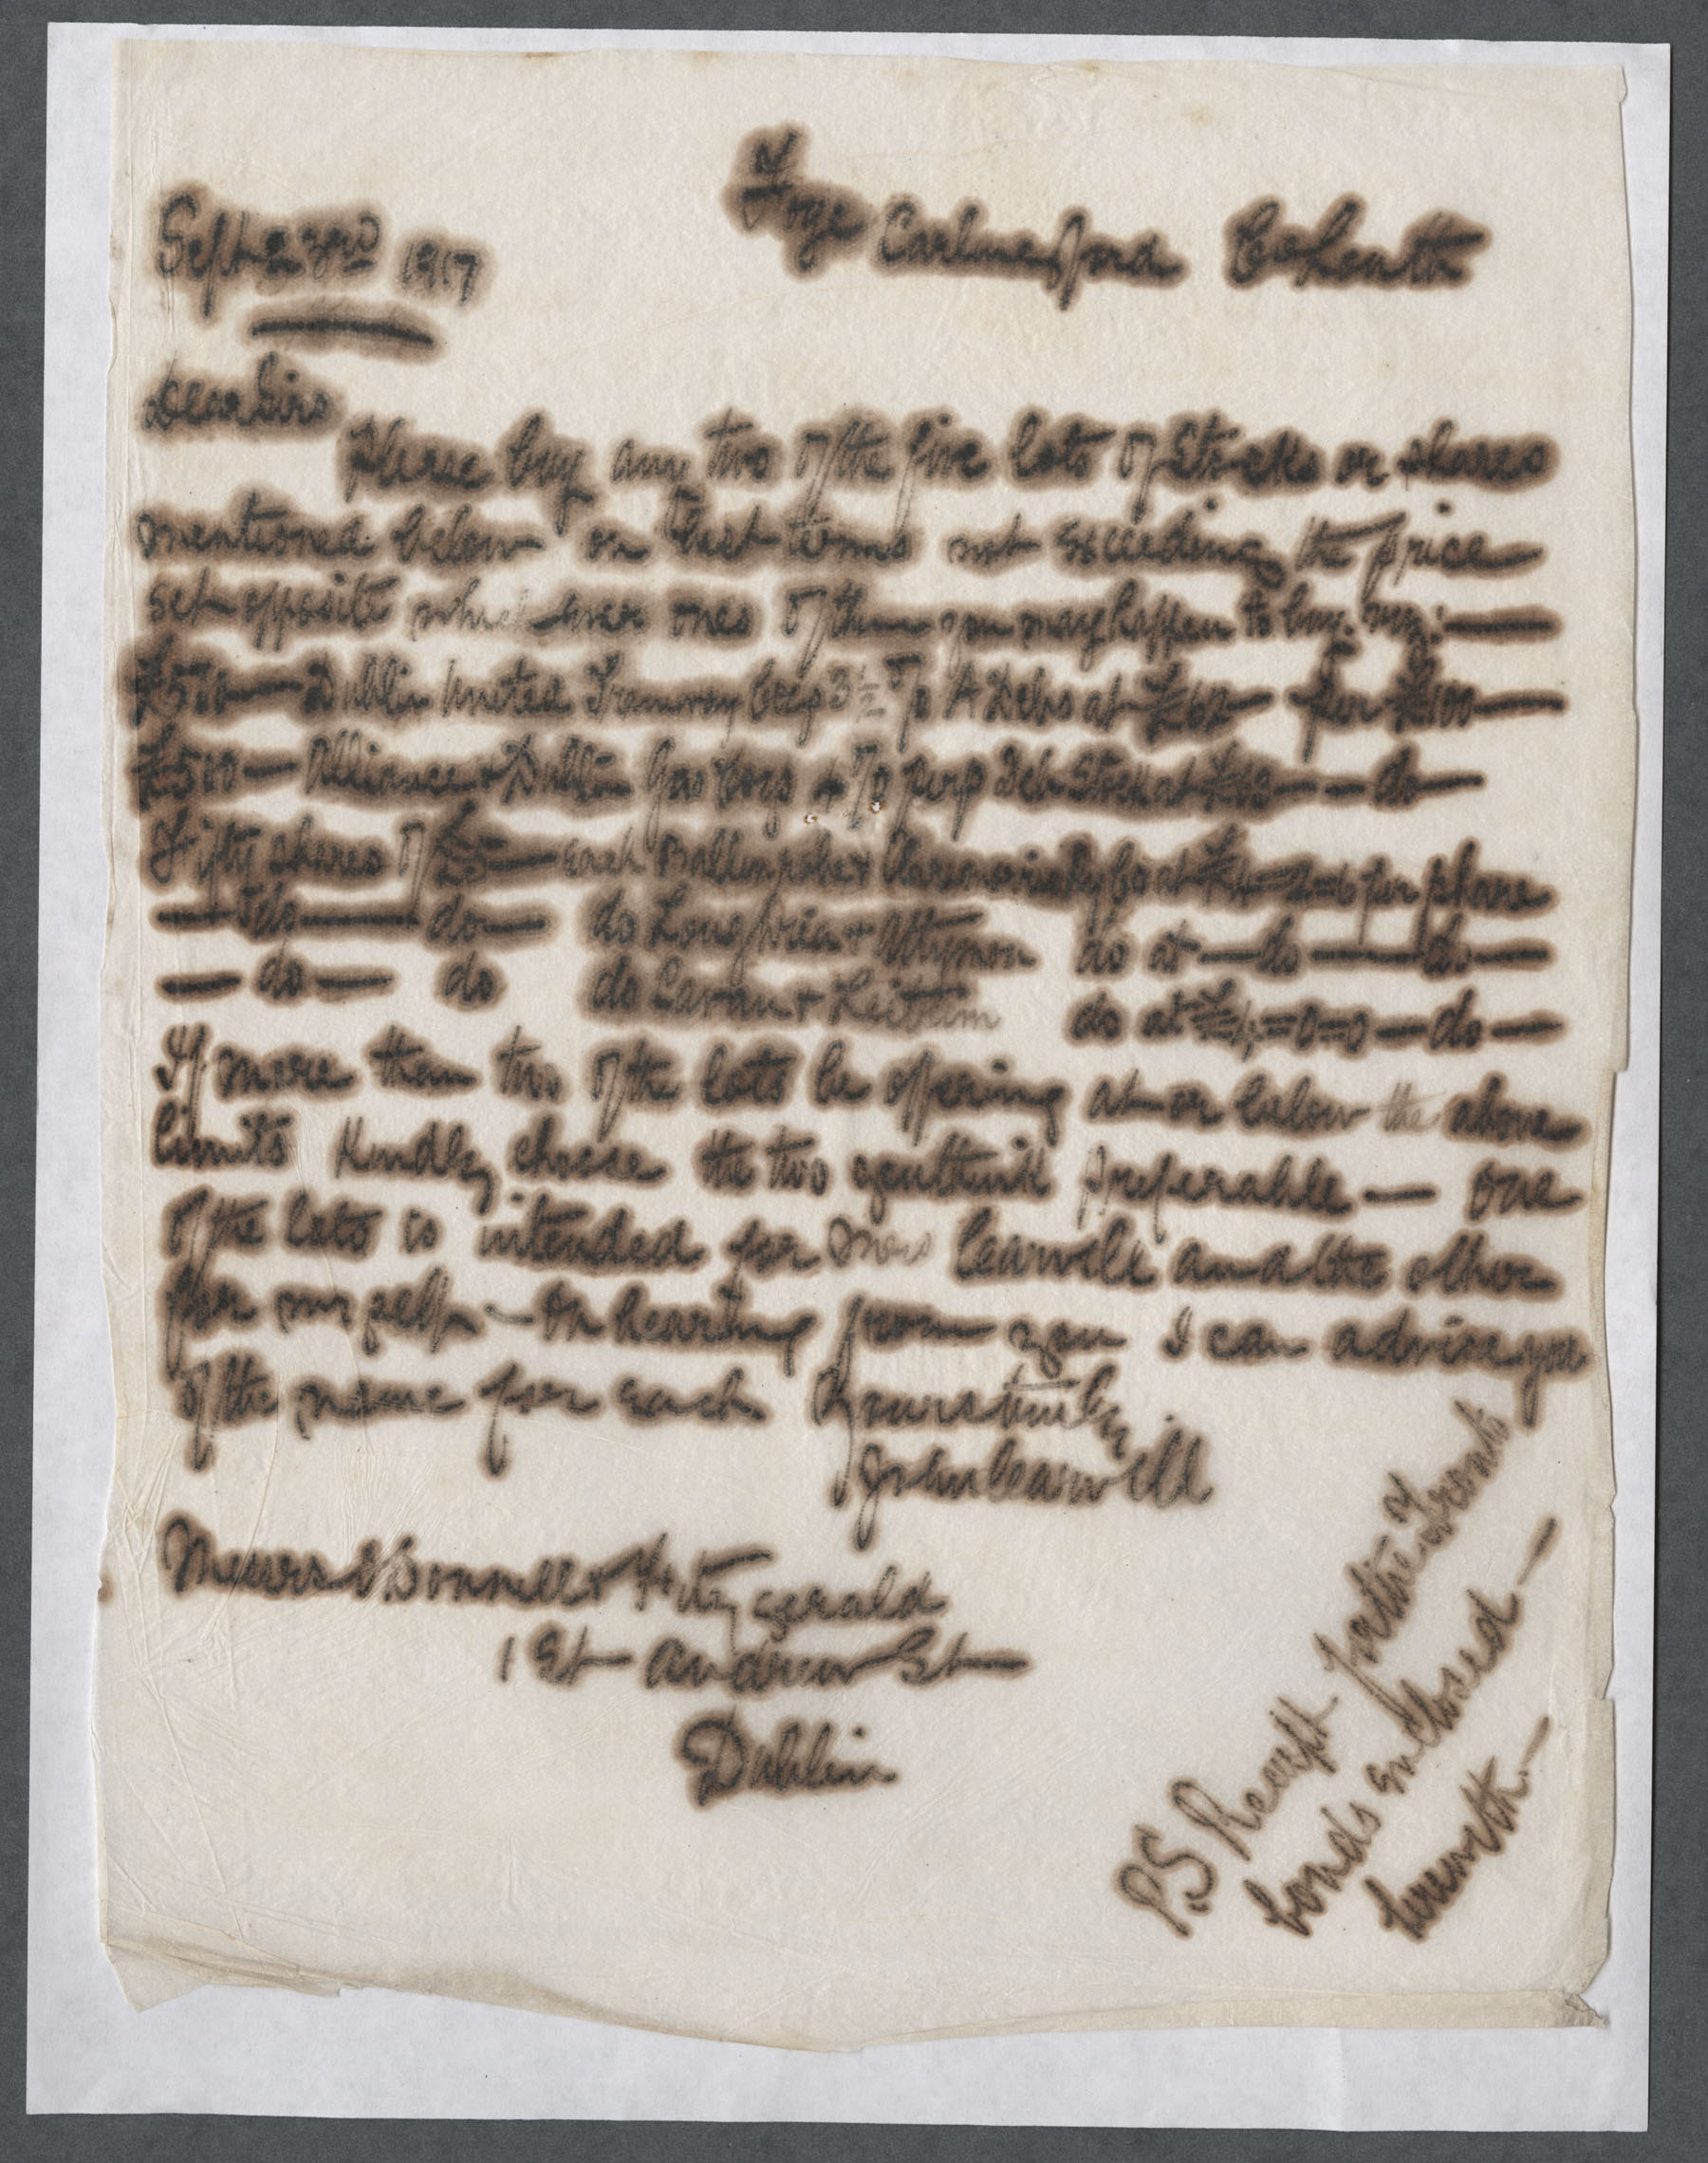 Septr 23rd 1917
Carlingford Co Louth
Dear Sirs
Please buy any two of the five lots of Stocks or shares
mentioned below on best terms not exceeding the price
set opposite whichever ones of them you may happen to buy. viz:—
£500— Dublin United Tramway Coys 3½ % A Debs at £62— per £100—
£500— Alliance & Dublin Gas Coys 4 % perp Deb Stock at — do—
Fifty shares of each Ballinrobe & Claremorris Ry Co at per share
— do — do — do Loughrea & Attymon do at — do — do —
— do — do do Cavan & Leitrim do at £4=0=0 — do —
If more than two of the lots be offering at or below the above
limits kindly choose the two you think preferable — one
of the lots is intended for Mrs and the other
for myself — On hearing from you I can advise you
of the name for each. Yours truly
John
Messrs O'Donnell & Fitzgerald
1 St Andrew St
Dublin
P.S. Receipt for the
bonds enclosed —
herewith. —